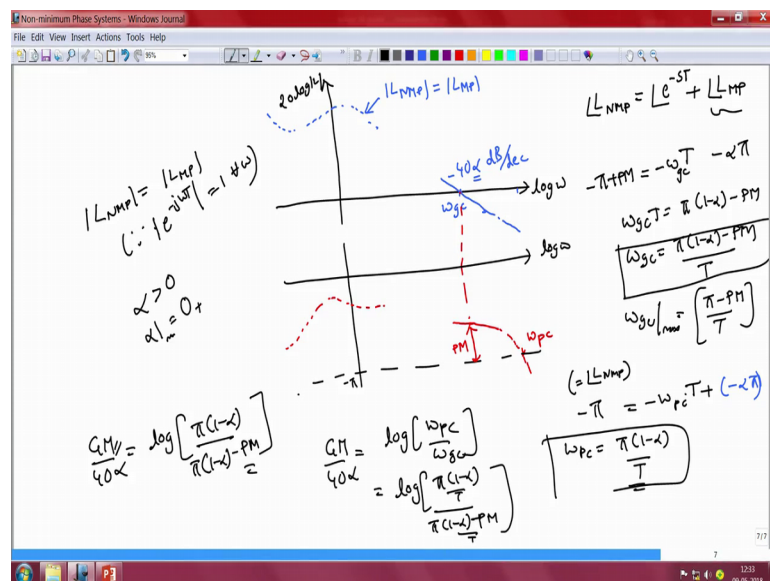 Non-minimum Phase Systems - Windows Journal
File Edit View Insert Actions Tools Help
95%
20log|L|
|L_NMP| = |L_MP|
∠L_NMP = ∠e^{-sT} + ∠L_MP
|L_NMP| = |L_MP|
(∵ |e^{-jωT}| = 1 ∀ω)
-40α dB/dec
logω
ω_gc
-π+PM = -ω_gc T - απ
ω_gc T = π(1-α) - PM
ω_gc = π(1-α)-PM / T
ω_gc|_max = [π-PM / T]
α > 0
α|_m = 0+
logω
PM
ω_pc
-π
(=∠L_NMP)
-π = -ω_pc T + (-απ)
ω_pc = π(1-α) / T
GM/40α = log[π(1-α) / π(1-α)-PM]
GM/40α = log[ω_pc / ω_gc]
= log[π(1-α)/T / π(1-α)-PM/T]
7/7
7
12:33
09-05-2018